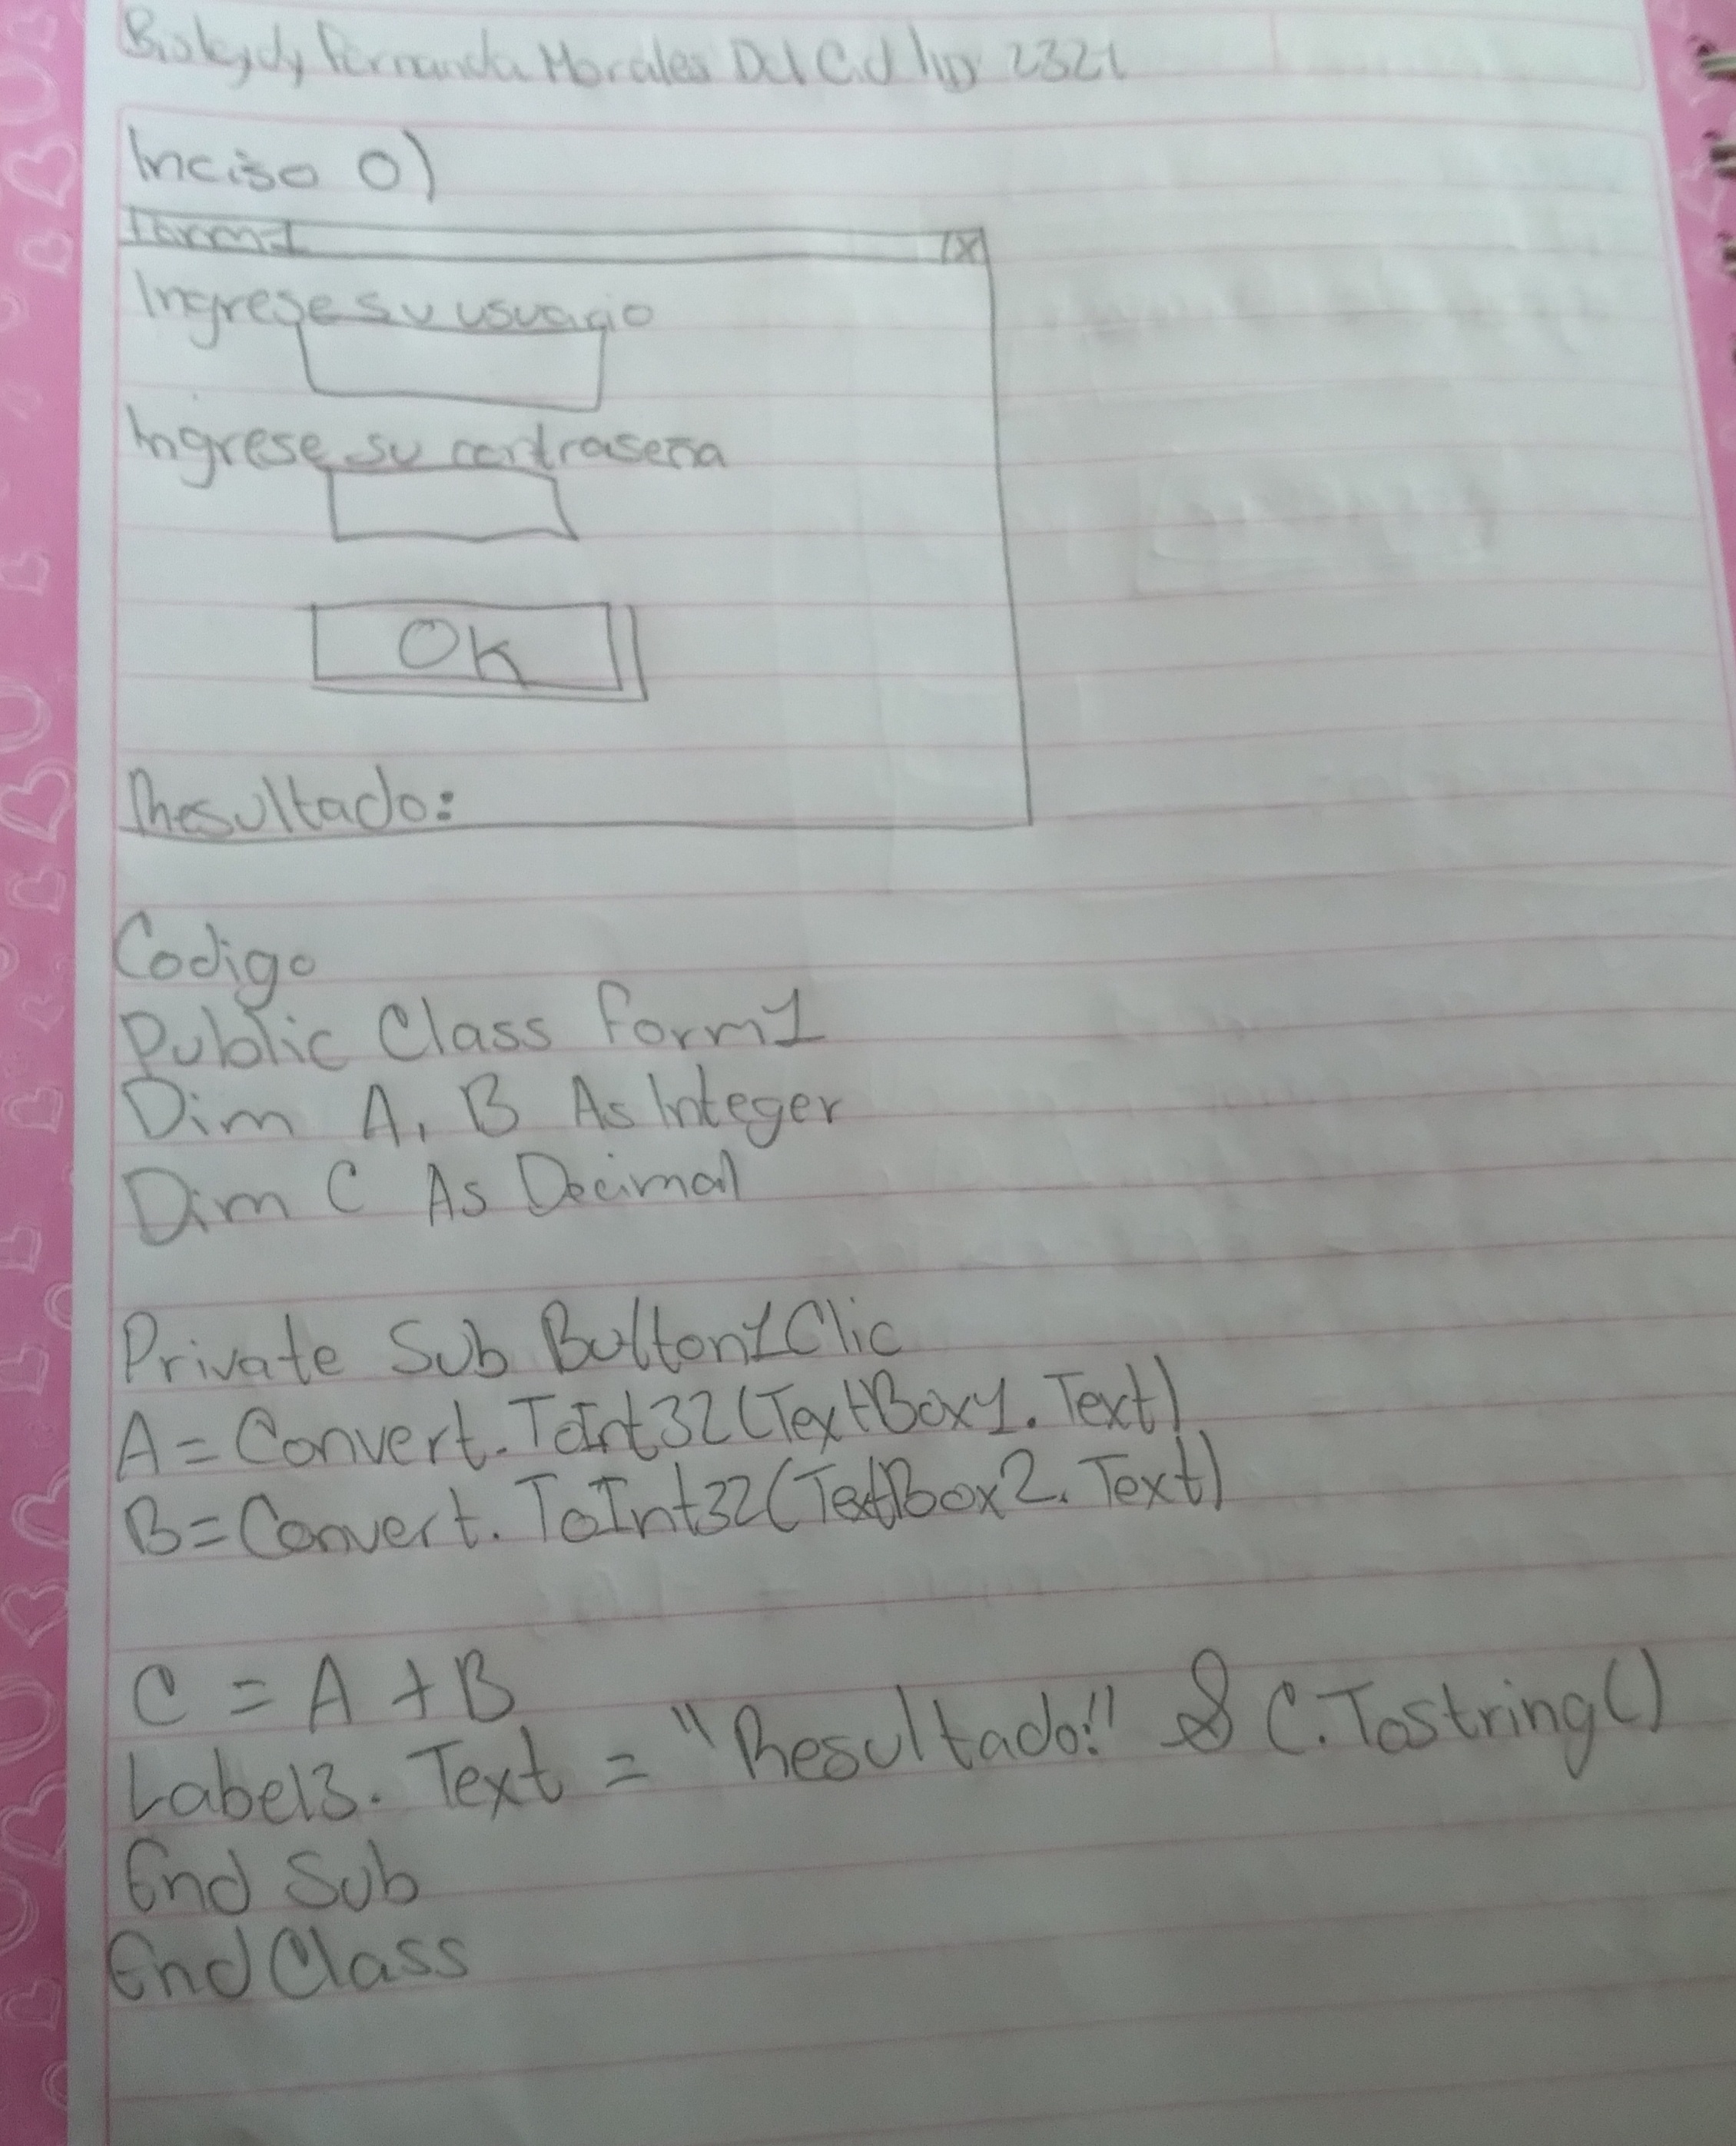 Fernanda Morales Del Cid 2321
Inciso O)
Form1 X
Ingrese su usuario
Ingrese su contraseña
OK
Resultado:
Codigo
Public Class Form1
Dim A, B As Integer
Dim C As Decimal
Private Sub Button1Clic
A = Convert.ToInt32(TextBox1.Text)
B = Convert.ToInt32(TextBox2.Text)
C = A + B
Label3.Text = "Resultado:" & C.Tostring()
End Sub
End Class